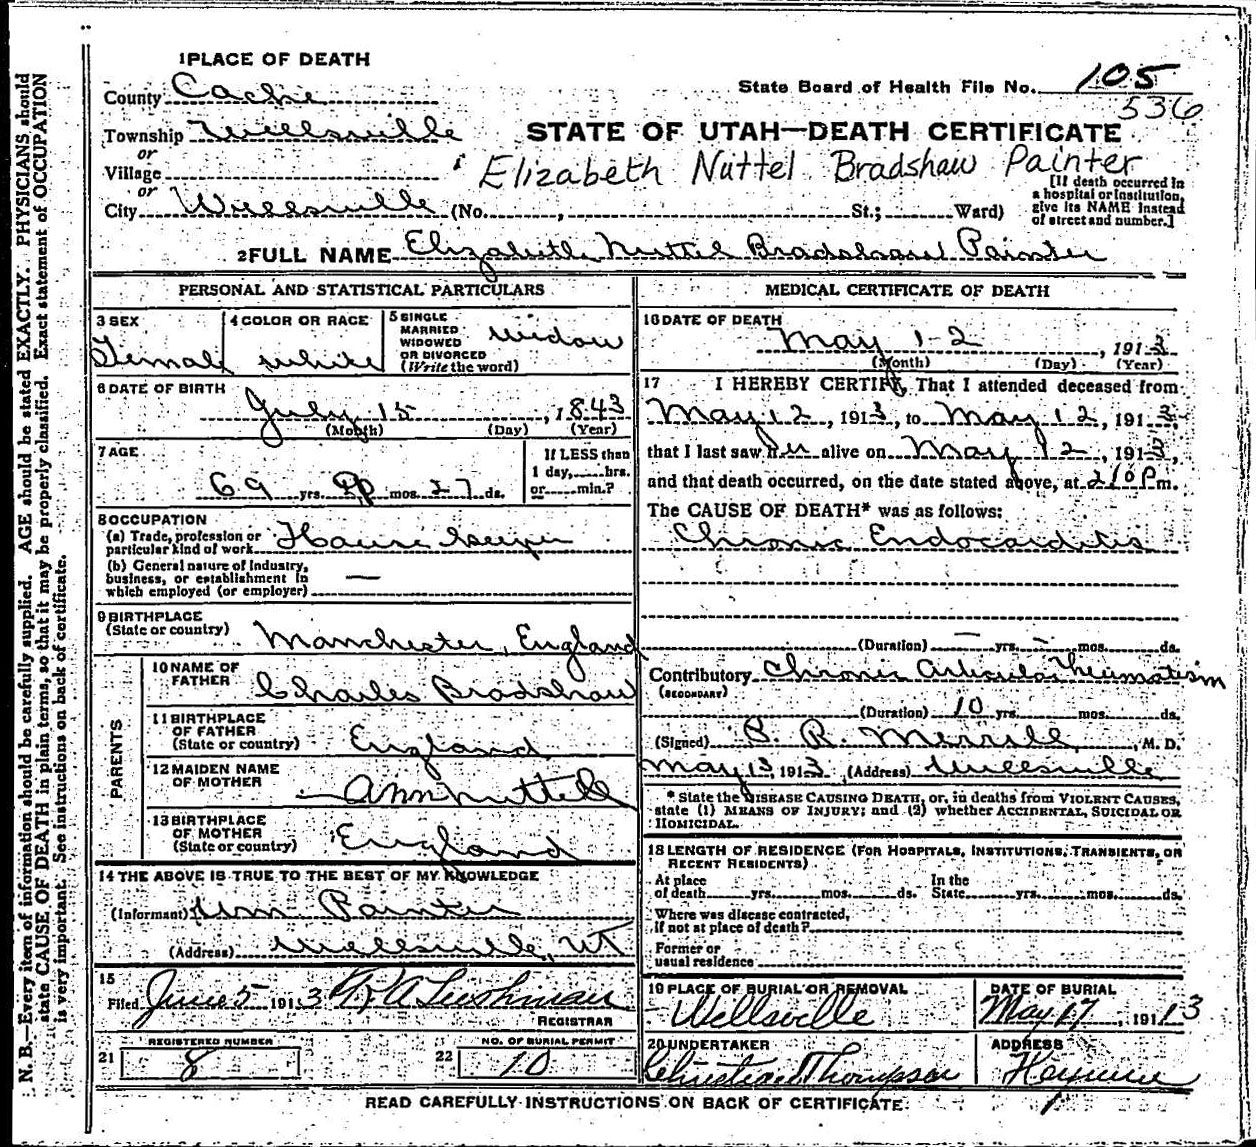 1 PLACE OF DEATH
County Cache
State Board of Health File No. 105
536
Township Wellsville
STATE OF UTAH—DEATH CERTIFICATE
or
Village
Elizabeth Nuttel Bradshaw Painter
or
City Wellsville (No. , St.; Ward)
[If death occurred in
a hospital or institution,
give its NAME instead
of street and number.]
2 FULL NAME Elizabeth Nuttel Bradshaw Painter
PERSONAL AND STATISTICAL PARTICULARS
3 SEX
Female
4 COLOR OR RACE
white
5 SINGLE
MARRIED
WIDOWED
OR DIVORCED
(Write the word)
widow
6 DATE OF BIRTH
July 15, 1843
(Month) (Day) (Year)
7 AGE
69 yrs. mos. 27 ds.
If LESS than
1 day, hrs.
or min.?
8 OCCUPATION
(a) Trade, profession or
particular kind of work House keeper
(b) General nature of Industry,
business, or establishment in
which employed (or employer) —
9 BIRTHPLACE
(State or country) Manchester, England
PARENTS
10 NAME OF
FATHER Charles Bradshaw
11 BIRTHPLACE
OF FATHER
(State or country) England
12 MAIDEN NAME
OF MOTHER Ann Nuttell
13 BIRTHPLACE
OF MOTHER
(State or country) England
14 THE ABOVE IS TRUE TO THE BEST OF MY KNOWLEDGE
(Informant) Wm. Painter
(Address) Wellsville, UT
15
Filed June 5 1913 R A Leishman
REGISTRAR
21 REGISTERED NUMBER
8
22 NO. OF BURIAL PERMIT
10
MEDICAL CERTIFICATE OF DEATH
16 DATE OF DEATH
May 12, 1913
(Month) (Day) (Year)
17 I HEREBY CERTIFY, That I attended deceased from
May 12, 1913, to May 12, 1913,
that I last saw her alive on May 12, 1913,
and that death occurred, on the date stated above, at 2:10 P m.
The CAUSE OF DEATH* was as follows:
Chronic Endocarditis
(Duration) — yrs. — mos. ds.
Contributory Chronic Articular Rheumatism
(SECONDARY)
(Duration) 10 yrs. mos. ds.
(Signed) S. R. Merrill, M. D.
May 13, 1913 (Address) Wellsville
* State the DISEASE CAUSING DEATH, or, in deaths from VIOLENT CAUSES,
state (1) MEANS OF INJURY; and (2) whether ACCIDENTAL, SUICIDAL OR
HOMICIDAL.
18 LENGTH OF RESIDENCE (FOR HOSPITALS, INSTITUTIONS, TRANSIENTS, OR
RECENT RESIDENTS)
At place
of death yrs. mos. ds.
In the
State yrs. mos. ds.
Where was disease contracted,
if not at place of death?
Former or
usual residence
19 PLACE OF BURIAL OR REMOVAL
Wellsville
DATE OF BURIAL
May 17, 1913
20 UNDERTAKER
Christian Thompson
ADDRESS
READ CAREFULLY INSTRUCTIONS ON BACK OF CERTIFICATE.
N. B.—Every item of information should be carefully supplied. AGE should be stated EXACTLY. PHYSICIANS should
state CAUSE OF DEATH in plain terms, so that it may be properly classified. Exact statement of OCCUPATION
is very important. See instructions on back of certificate.